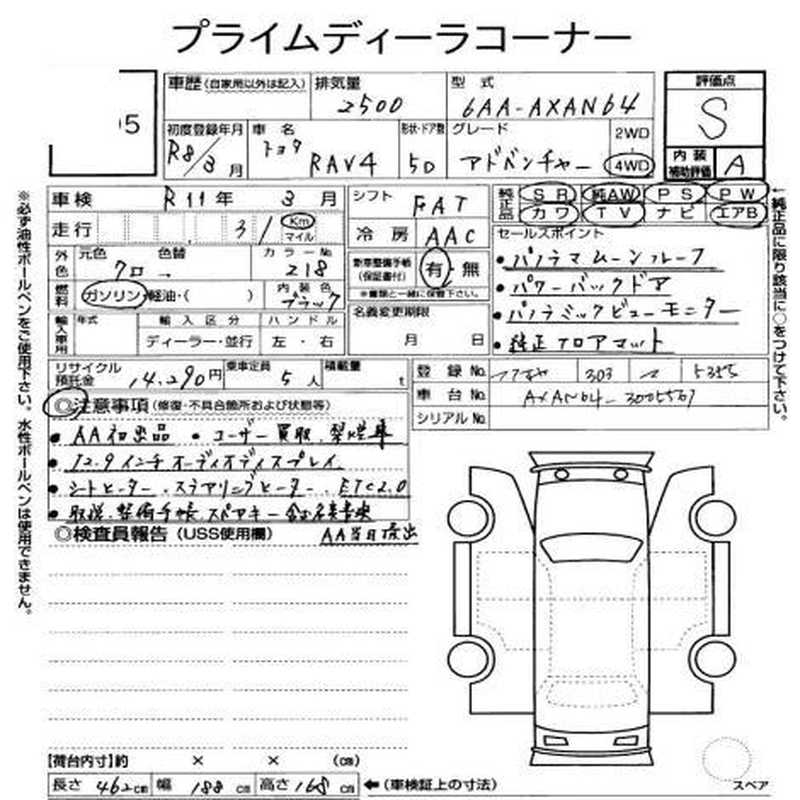 プライムディーラコーナー
05
車歴 (自家用以外は記入)
排気量
2500
型式
6AA-AXAN64
評価点
S
初度登録年月
R8/3月
車名
トヨタ
RAV4
形状・ドア数
5D
グレード
アドベンチャー
2WD
4WD
内装補助評価
A
車検 R11年 3月
シフト FAT
純正品
SR 純AW PS PW
カワ TV ナビ エアB
走行 31 Km マイル
冷房 AAC
セールスポイント
外色
元色 色替
クロ→
カラーNo.
218
新車整備手帳
(保証書付)
有・無
※書類と一緒に保管下さい。
・パノラマムーンルーフ
・パワーバックドア
・パノラミックビューモニター
・純正フロアマット
燃料
ガソリン・軽油・( )
内装色
ブラック
輸入車用
年式
輸入区分
ディーラー・並行
ハンドル
左・右
名義変更期限
月 日
リサイクル預託金 14,290円
乗車定員 5人
積載量 t
登録No. 303 5355
車台No. AXAN64-3005567
シリアルNo.
◎注意事項 (修復・不具合箇所および状態等)
・AA初出品 ・ユーザー買取、禁煙車
・12.9インチオーディオディスプレイ
・シートヒーター、ステアリングヒーター、ETC2.0
・取説、整備手帳、スペアキー
◎検査員報告 (USS使用欄)
AA当日搬出
【荷台内寸】約 × × (cm)
長さ 462cm 幅 188cm 高さ 168cm ←(車検証上の寸法)
スペア
※必ず油性ボールペンをご使用下さい。水性ボールペンは使用できません。
←純正品に限り該当に○をつけて下さい。